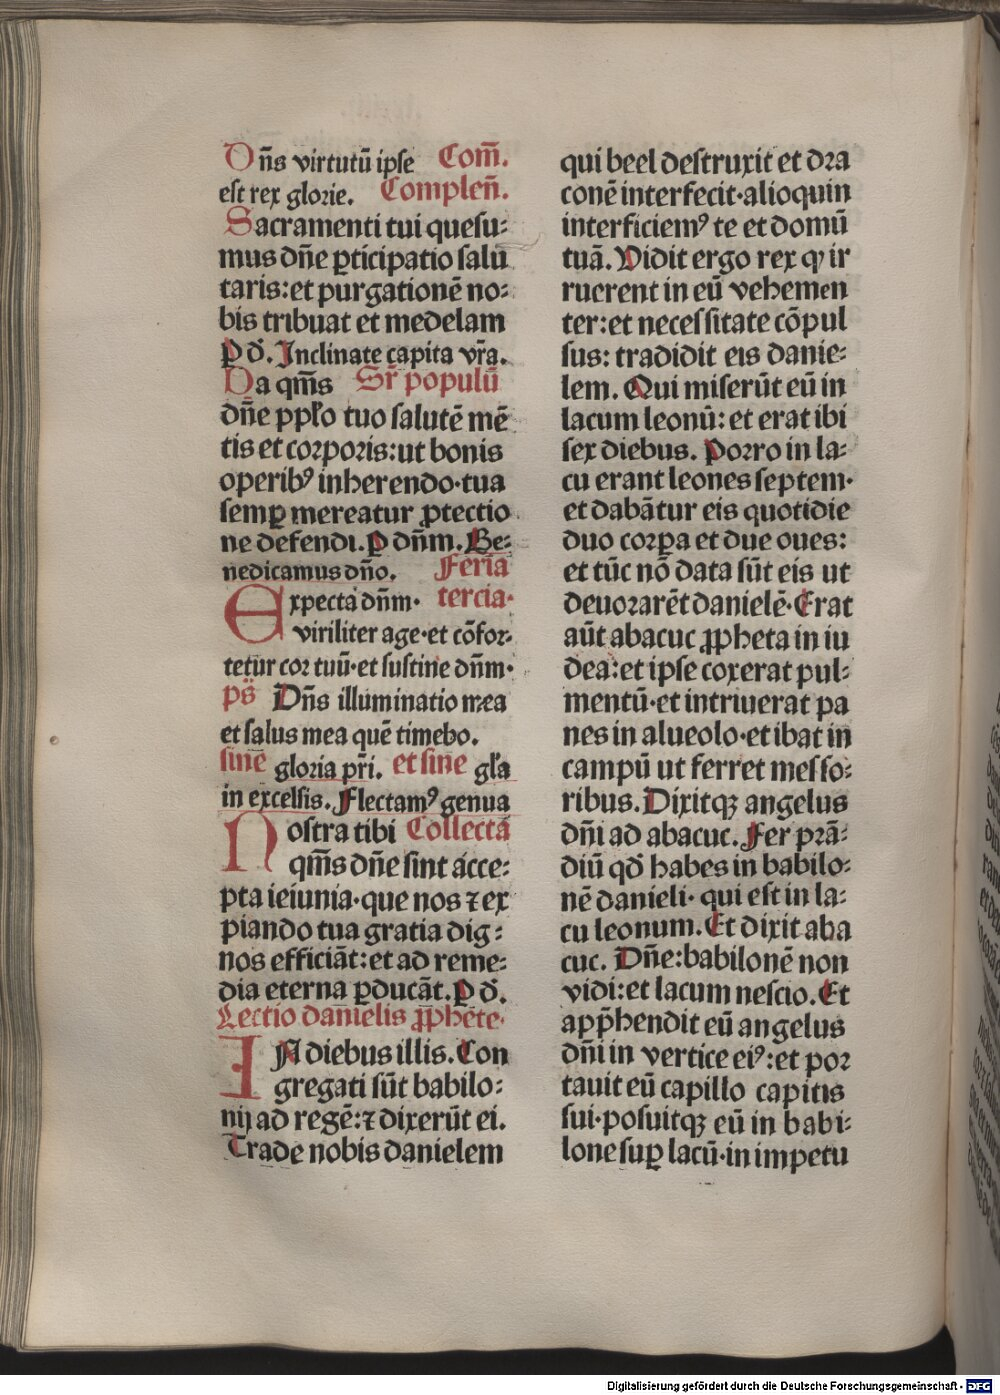 Dñs virtutũ ipse Com̃.
est rex glorie. Compleñ.
Sacramenti tui quesu⸗
mus dñe ꝑticipatio salu
taris: et purgationẽ no⸗
bis tribuat et medelam
P d̃. Inclinate capita vr̃a.
Da qm̃s Sr̃ populũ
dñe pp̃lo tuo salutẽ mẽ
tis et corporis: ut bonis
operibꝰ inherendo·tua
semꝑ mereatur ꝓtectio
ne defendi. P dñm. Be⸗
nedicamus dño. Feria
Expecta dñm· tercia·
viriliter age·et cõfor⸗
tetur cor tuũ·et sustine dñm·
ps̃ Dñs illuminatio mea
et salus mea quẽ timebo.
sine gloria pr̃i. et sine gl̃a
in excelsis. Flectamꝰ genua
Nostra tibi Collecta
qm̃s dñe sint acce⸗
pta ieiunia·que nos ⁊ ex
piando tua gratia dig⸗
nos efficiãt: et ad reme⸗
dia eterna ꝑducãt. P d̃.
Lectio danielis ꝓphete·
IN diebus illis. Con
gregati sũt babilo⸗
nij ad regẽ: ⁊ dixerũt ei.
Trade nobis danielem
qui beel destruxit et dra
conẽ interfecit·alioquin
interficiemꝰ te et domũ
tuã. Vidit ergo rex ꝙ ir
ruerent in eũ vehemen
ter: et necessitate cõpul
sus: tradidit eis danie⸗
lem. Qui miserũt eũ in
lacum leonũ: et erat ibi
sex diebus. Porro in la⸗
cu erant leones septem·
et dabãtur eis quotidie
duo corꝑa et due oues:
et tũc nõ data sũt eis ut
deuorarẽt danielẽ·Erat
aũt abacuc ꝓpheta in iu
dea: et ipse coxerat pul⸗
mentũ·et intriuerat pa
nes in alueolo·et ibat in
campũ ut ferret messo⸗
ribus. Dixitqꝫ angelus
dñi ad abacuc. Fer prã⸗
diũ qd̃ habes in babilo⸗
nẽ danieli· qui est in la⸗
cu leonum. Et dixit aba
cuc. Dñe: babilonẽ non
vidi: et lacum nescio. Et
app̃hendit eũ angelus
dñi in vertice eiꝰ: et por
tauit eũ capillo capitis
sui·posuitqꝫ eũ in babi⸗
lone suꝑ lacũ·in impetu
Digitalisierung gefördert durch die Deutsche Forschungsgemeinschaft - DFG